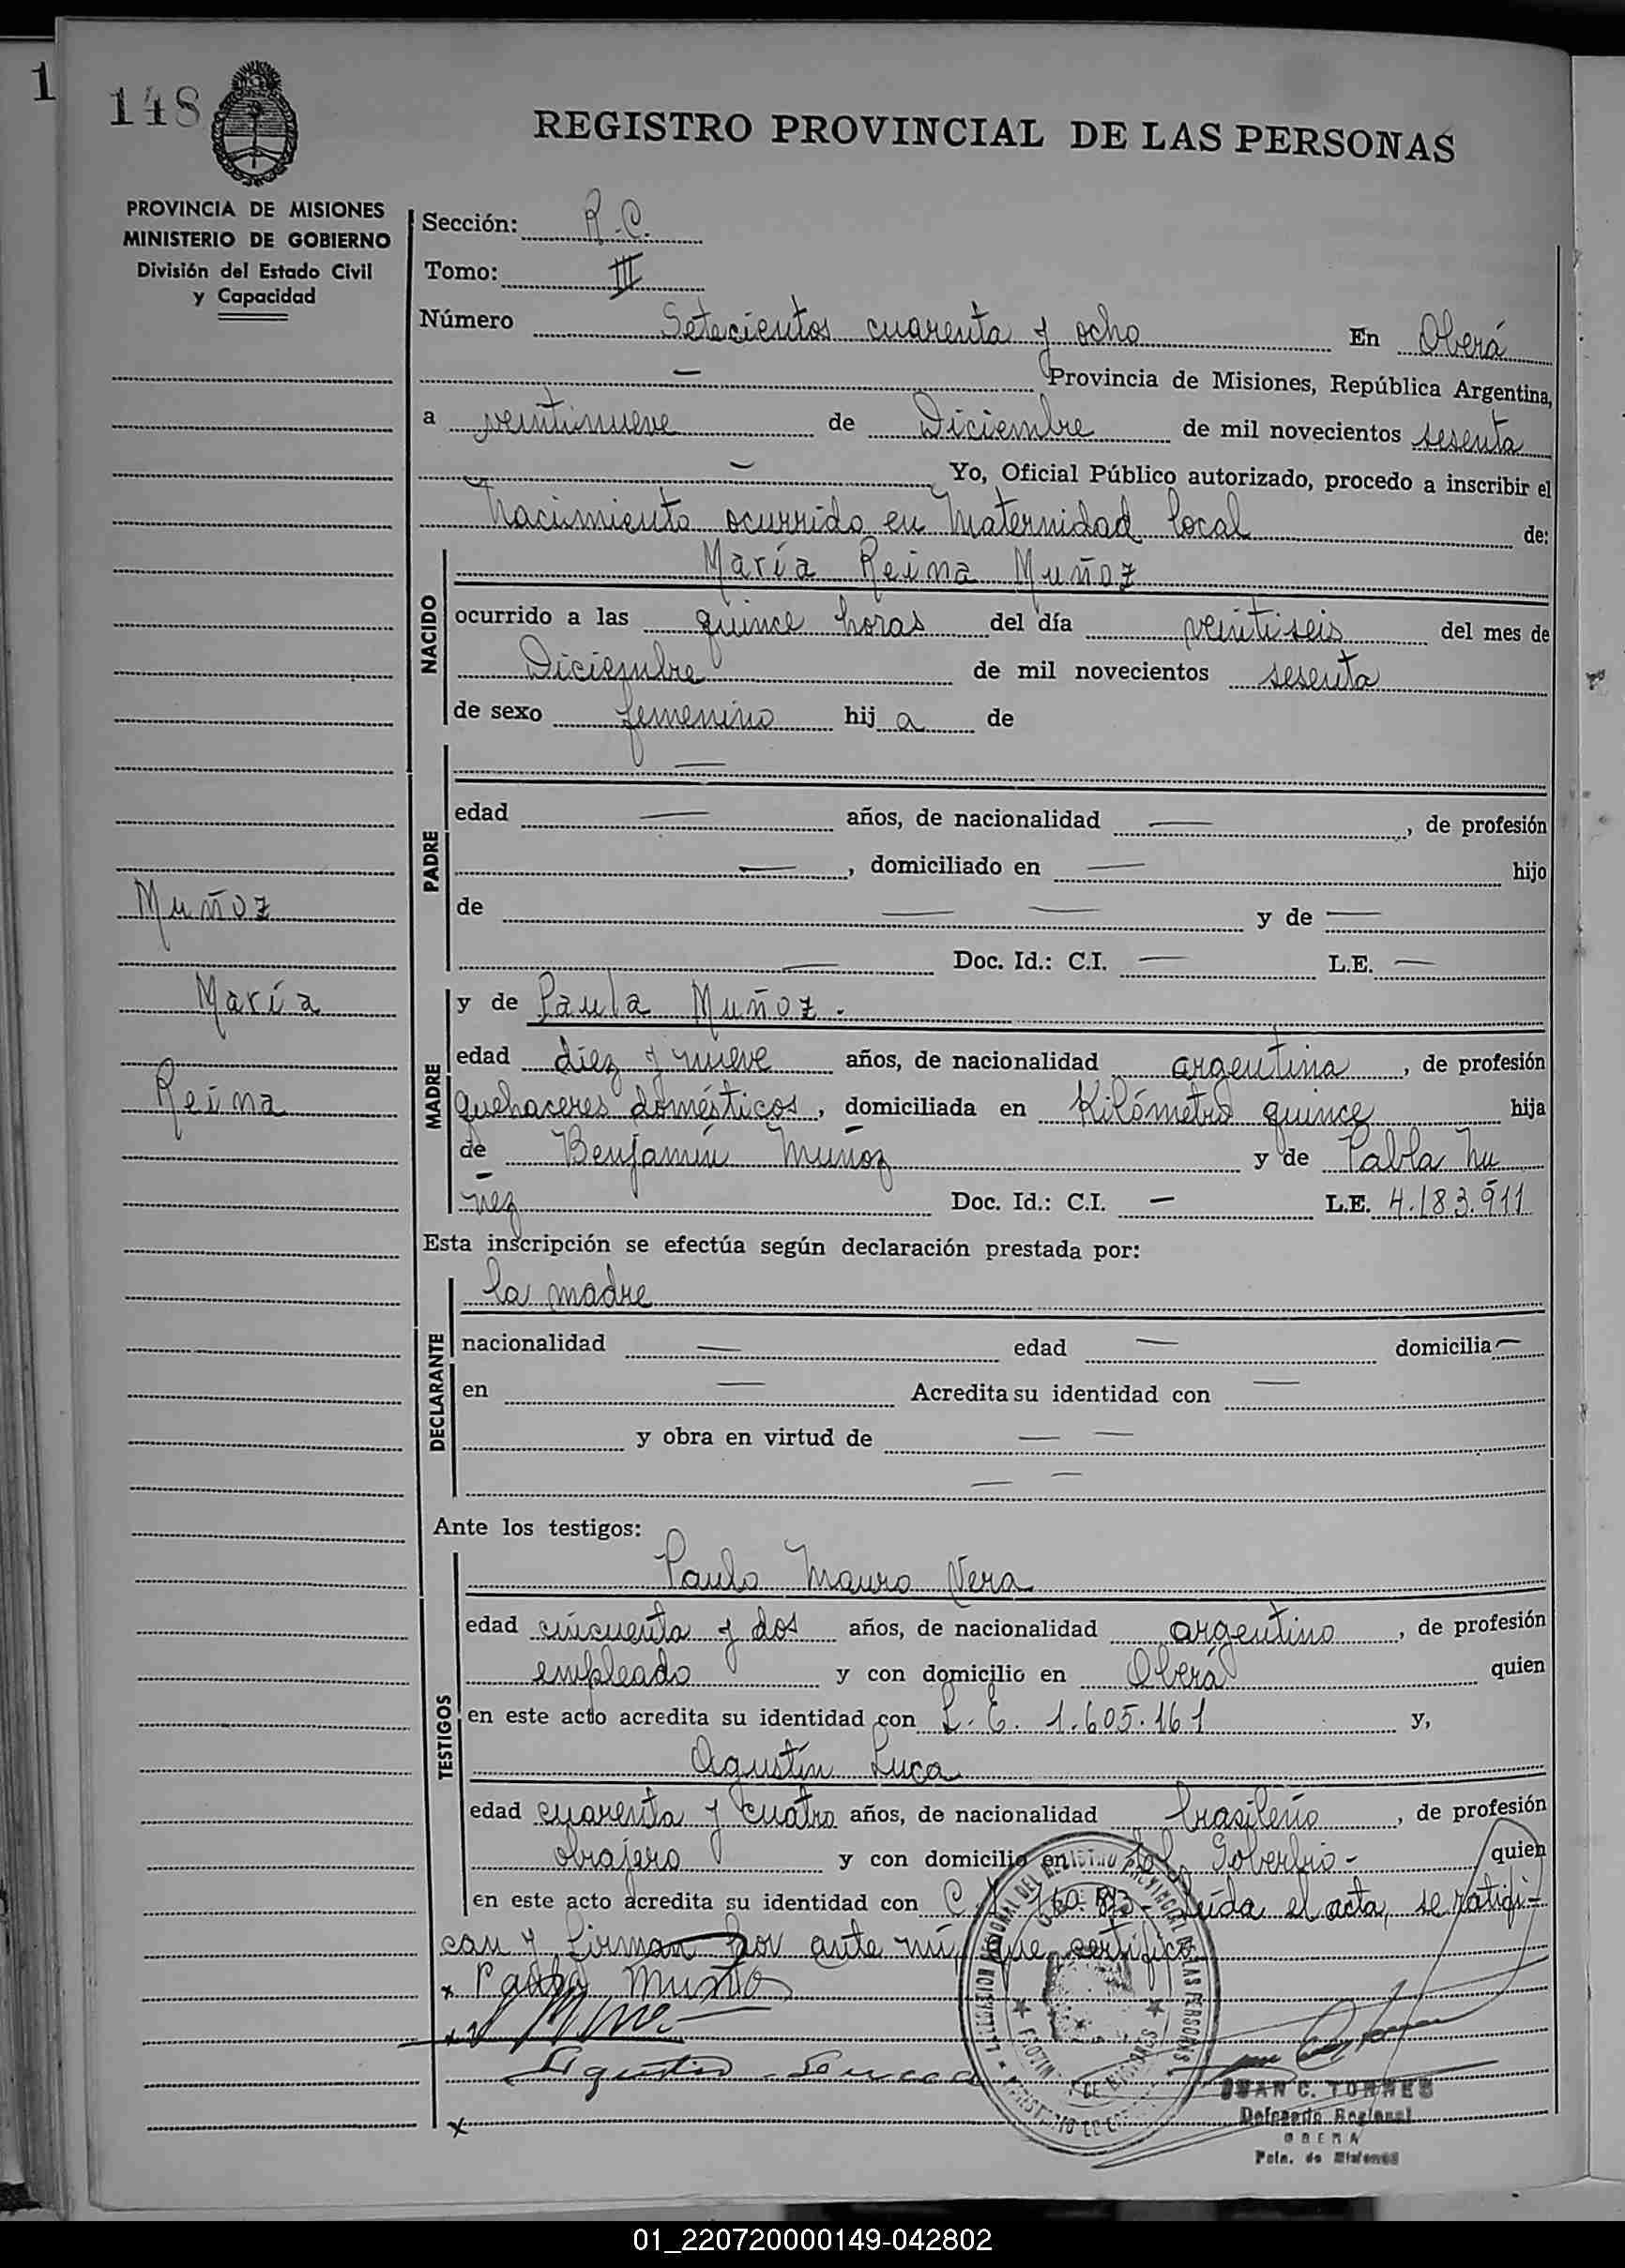 1
148
REGISTRO PROVINCIAL DE LAS PERSONAS
PROVINCIA DE MISIONES
MINISTERIO DE GOBIERNO
División del Estado Civil
y Capacidad
Sección: R.C.
Tomo: III
Número Setecientos cuarenta y ocho En Oberá
— Provincia de Misiones, República Argentina,
a veintinueve de Diciembre de mil novecientos sesenta
— Yo, Oficial Público autorizado, procedo a inscribir el
Nacimiento ocurrido en Maternidad local de:
NACIDO
María Reina Muñoz
ocurrido a las quince horas del día veintiseis del mes de
Diciembre de mil novecientos sesenta
de sexo femenino hij a de
PADRE
—
edad — años, de nacionalidad —, de profesión
—, domiciliado en — hijo
de — — y de —
— Doc. Id.: C.I. — L.E. —
Muñoz
María
Reina
MADRE
y de Paula Muñoz.
edad diez y nueve años, de nacionalidad argentina, de profesión
quehaceres domésticos, domiciliada en Kilómetro quince hija
de Benjamín Muñoz y de Pabla Nu
ñez Doc. Id.: C.I. — L.E. 4.183.911
Esta inscripción se efectúa según declaración prestada por:
DECLARANTE
la madre
nacionalidad — edad — domicilia—
en — Acredita su identidad con —
y obra en virtud de — —
— —
Ante los testigos:
TESTIGOS
Paulo Mauro Vera
edad cincuenta y dos años, de nacionalidad argentino, de profesión
empleado y con domicilio en Oberá quien
en este acto acredita su identidad con L.E. 1.605.161 y,
Agustín Luca
edad cuarenta y cuatro años, de nacionalidad brasileño, de profesión
obrajero y con domicilio en El Soberbio - quien
en este acto acredita su identidad con C.I. Leída el acta, se ratifi-
can y firman por ante mí, que certifico
x Paula Muño
x
Agustin
x
JUAN C. TORRES
Delegado Regional
OBERA
Pcia. de Misiones
01_220720000149-042802